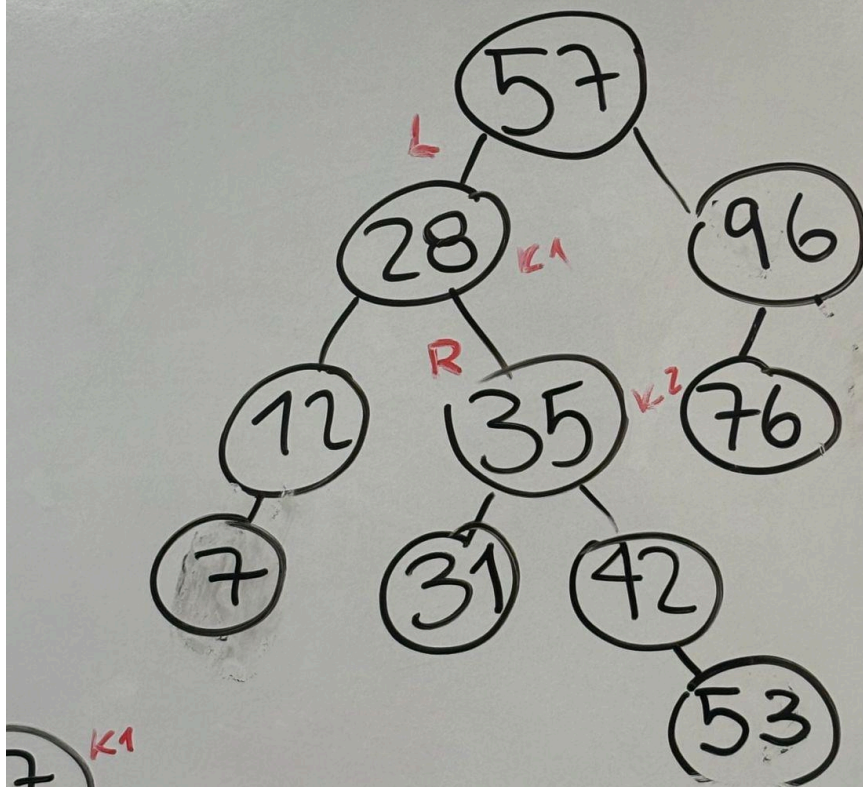 57
L
28 K1 96
R
12 35 K2 76
7 31 42
53
K1
7